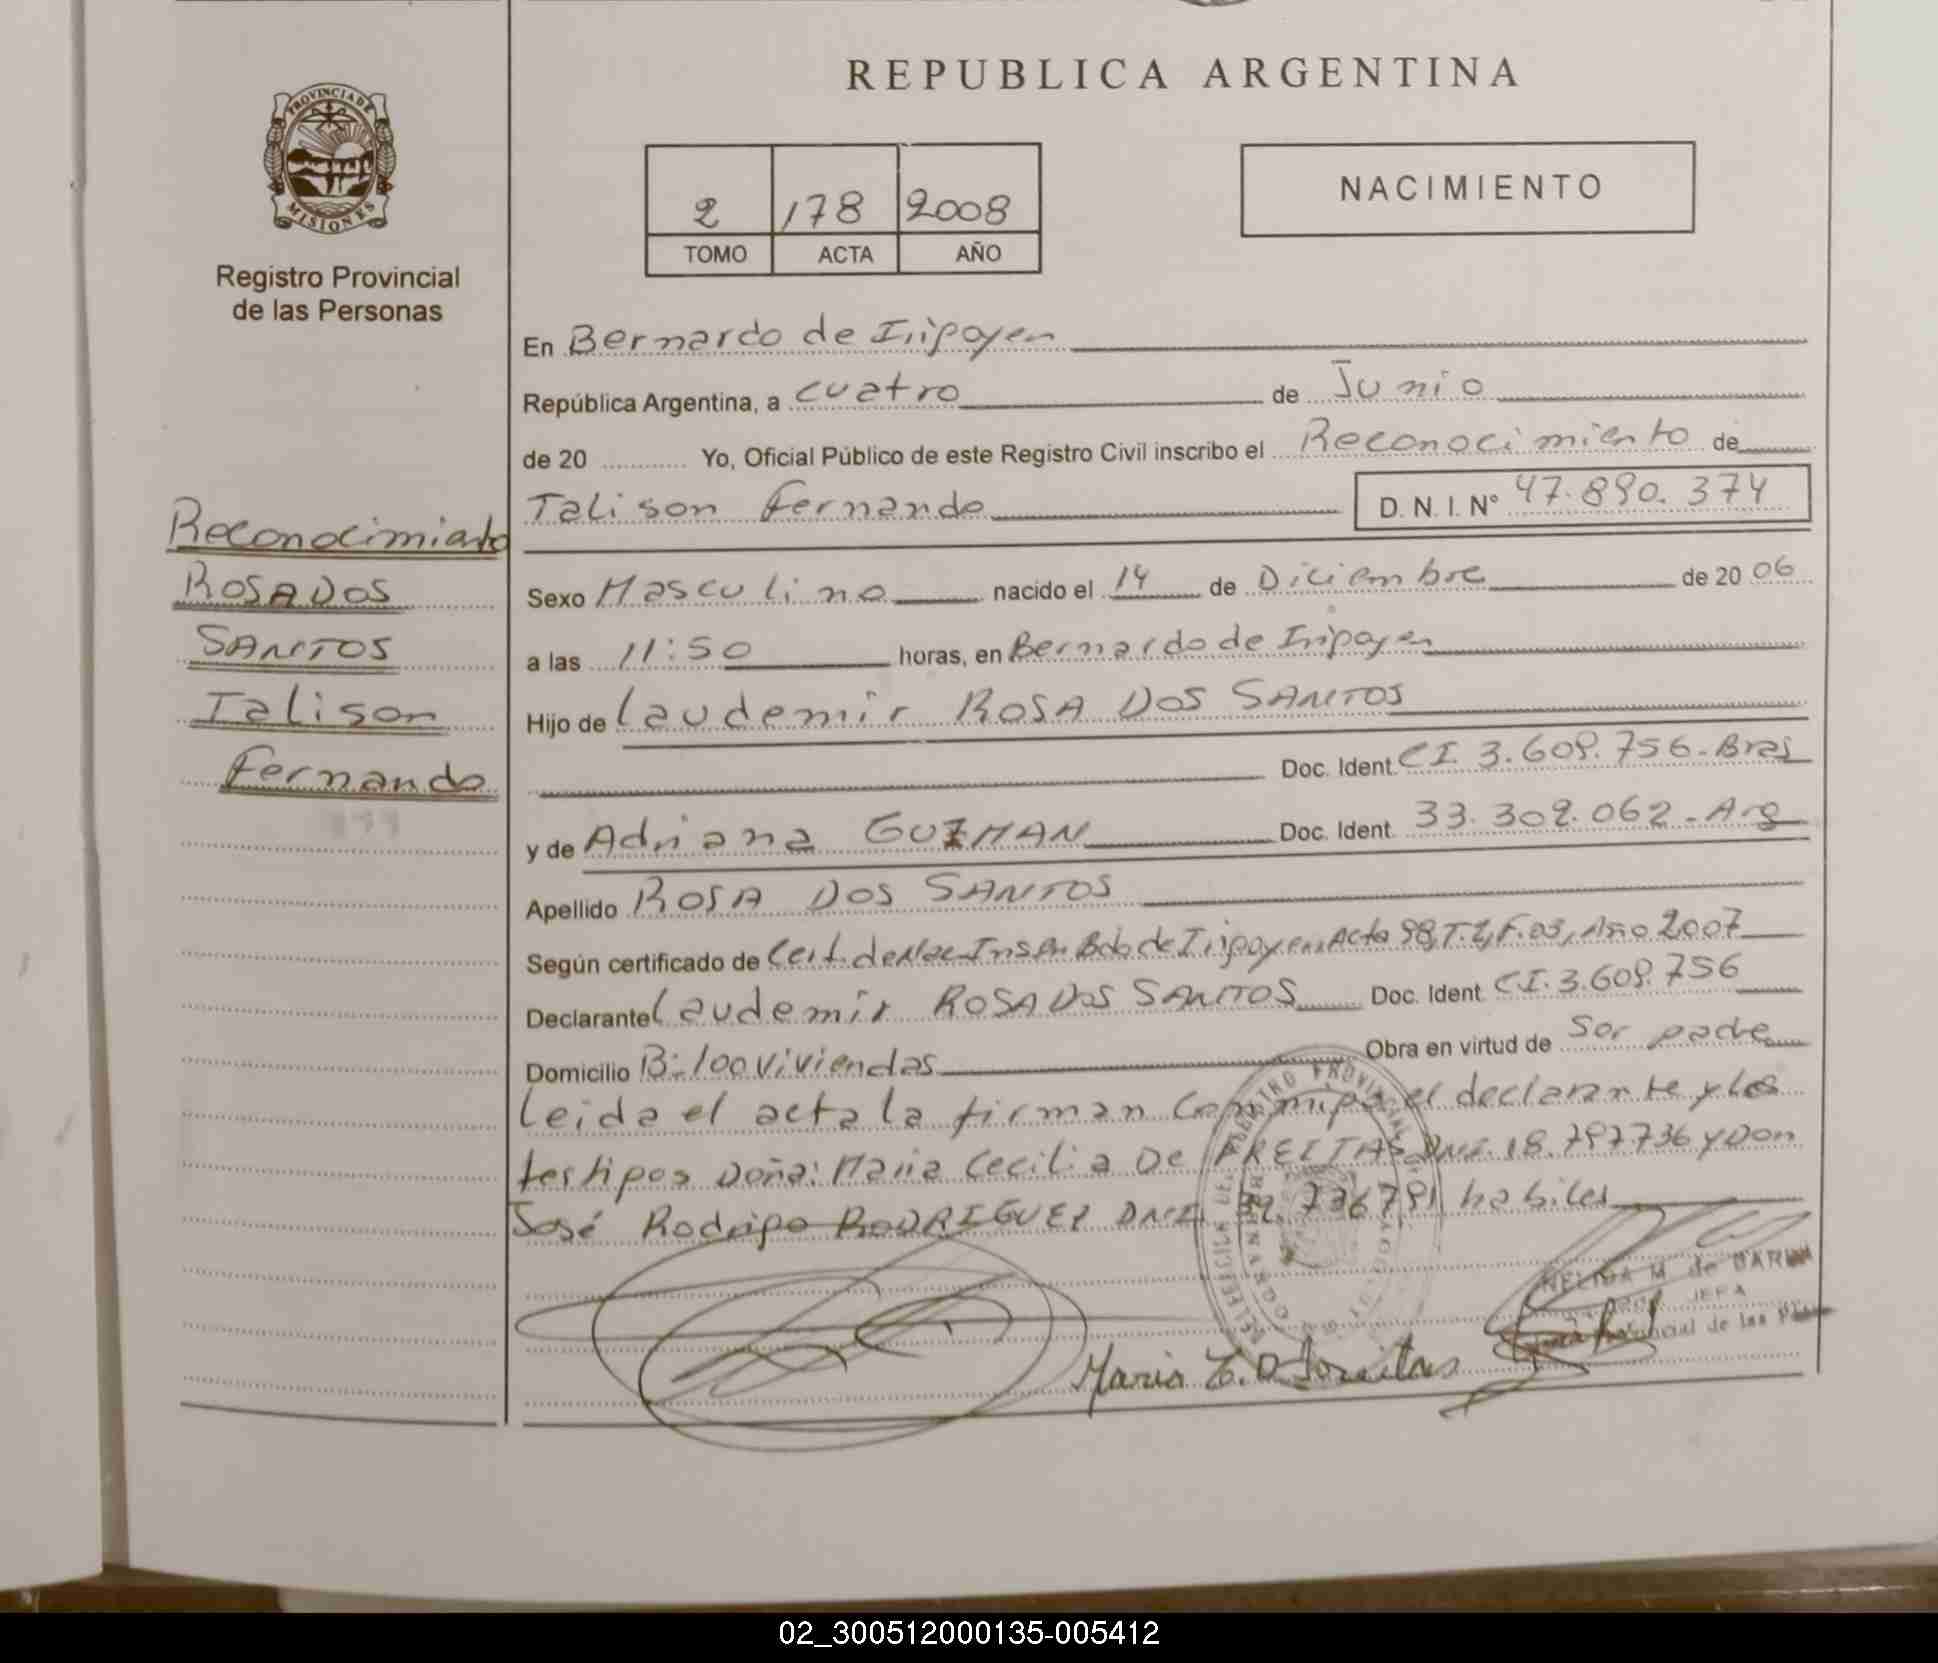 REPUBLICA ARGENTINA
PROVINCIA DE MISIONES
Registro Provincial
de las Personas
2 178 2008
TOMO ACTA AÑO
NACIMIENTO
En Bernardo de Irigoyen
República Argentina, a cuatro de Junio
de 20 Yo, Oficial Público de este Registro Civil inscribo el Reconocimiento de
Talison Fernando D. N. I. Nº 47.890.374
Reconocimiento
ROSA DOS
SANTOS
Talison
Fernando
Sexo Masculino nacido el 14 de Diciembre de 20 06
a las 11:50 horas, en Bernardo de Irigoyen
Hijo de Laudemir ROSA DOS SANTOS
Doc. Ident. CI. 3.609.756-Bras
y de Adriana GUZMAN Doc. Ident. 33.302.062-Arg
Apellido ROSA DOS SANTOS
Según certificado de Cert. de Nac Ins en Bdo de Irigoyen, Acta 98, T.1, F.03, Año 2007
Declarante Laudemir ROSA DOS SANTOS Doc. Ident. CI. 3.609.756
Domicilio B: 100 viviendas Obra en virtud de Ser padre
Leida el acta la firman conmigo el declarante y los
testigos Doña: Maria Cecilia DE FREITAS DNI. 18.797.736 y Don
José Rodrigo RODRIGUEZ DNI. habiles
NELIDA M. de
JEFA
Maria C. D Freitas
02_300512000135-005412